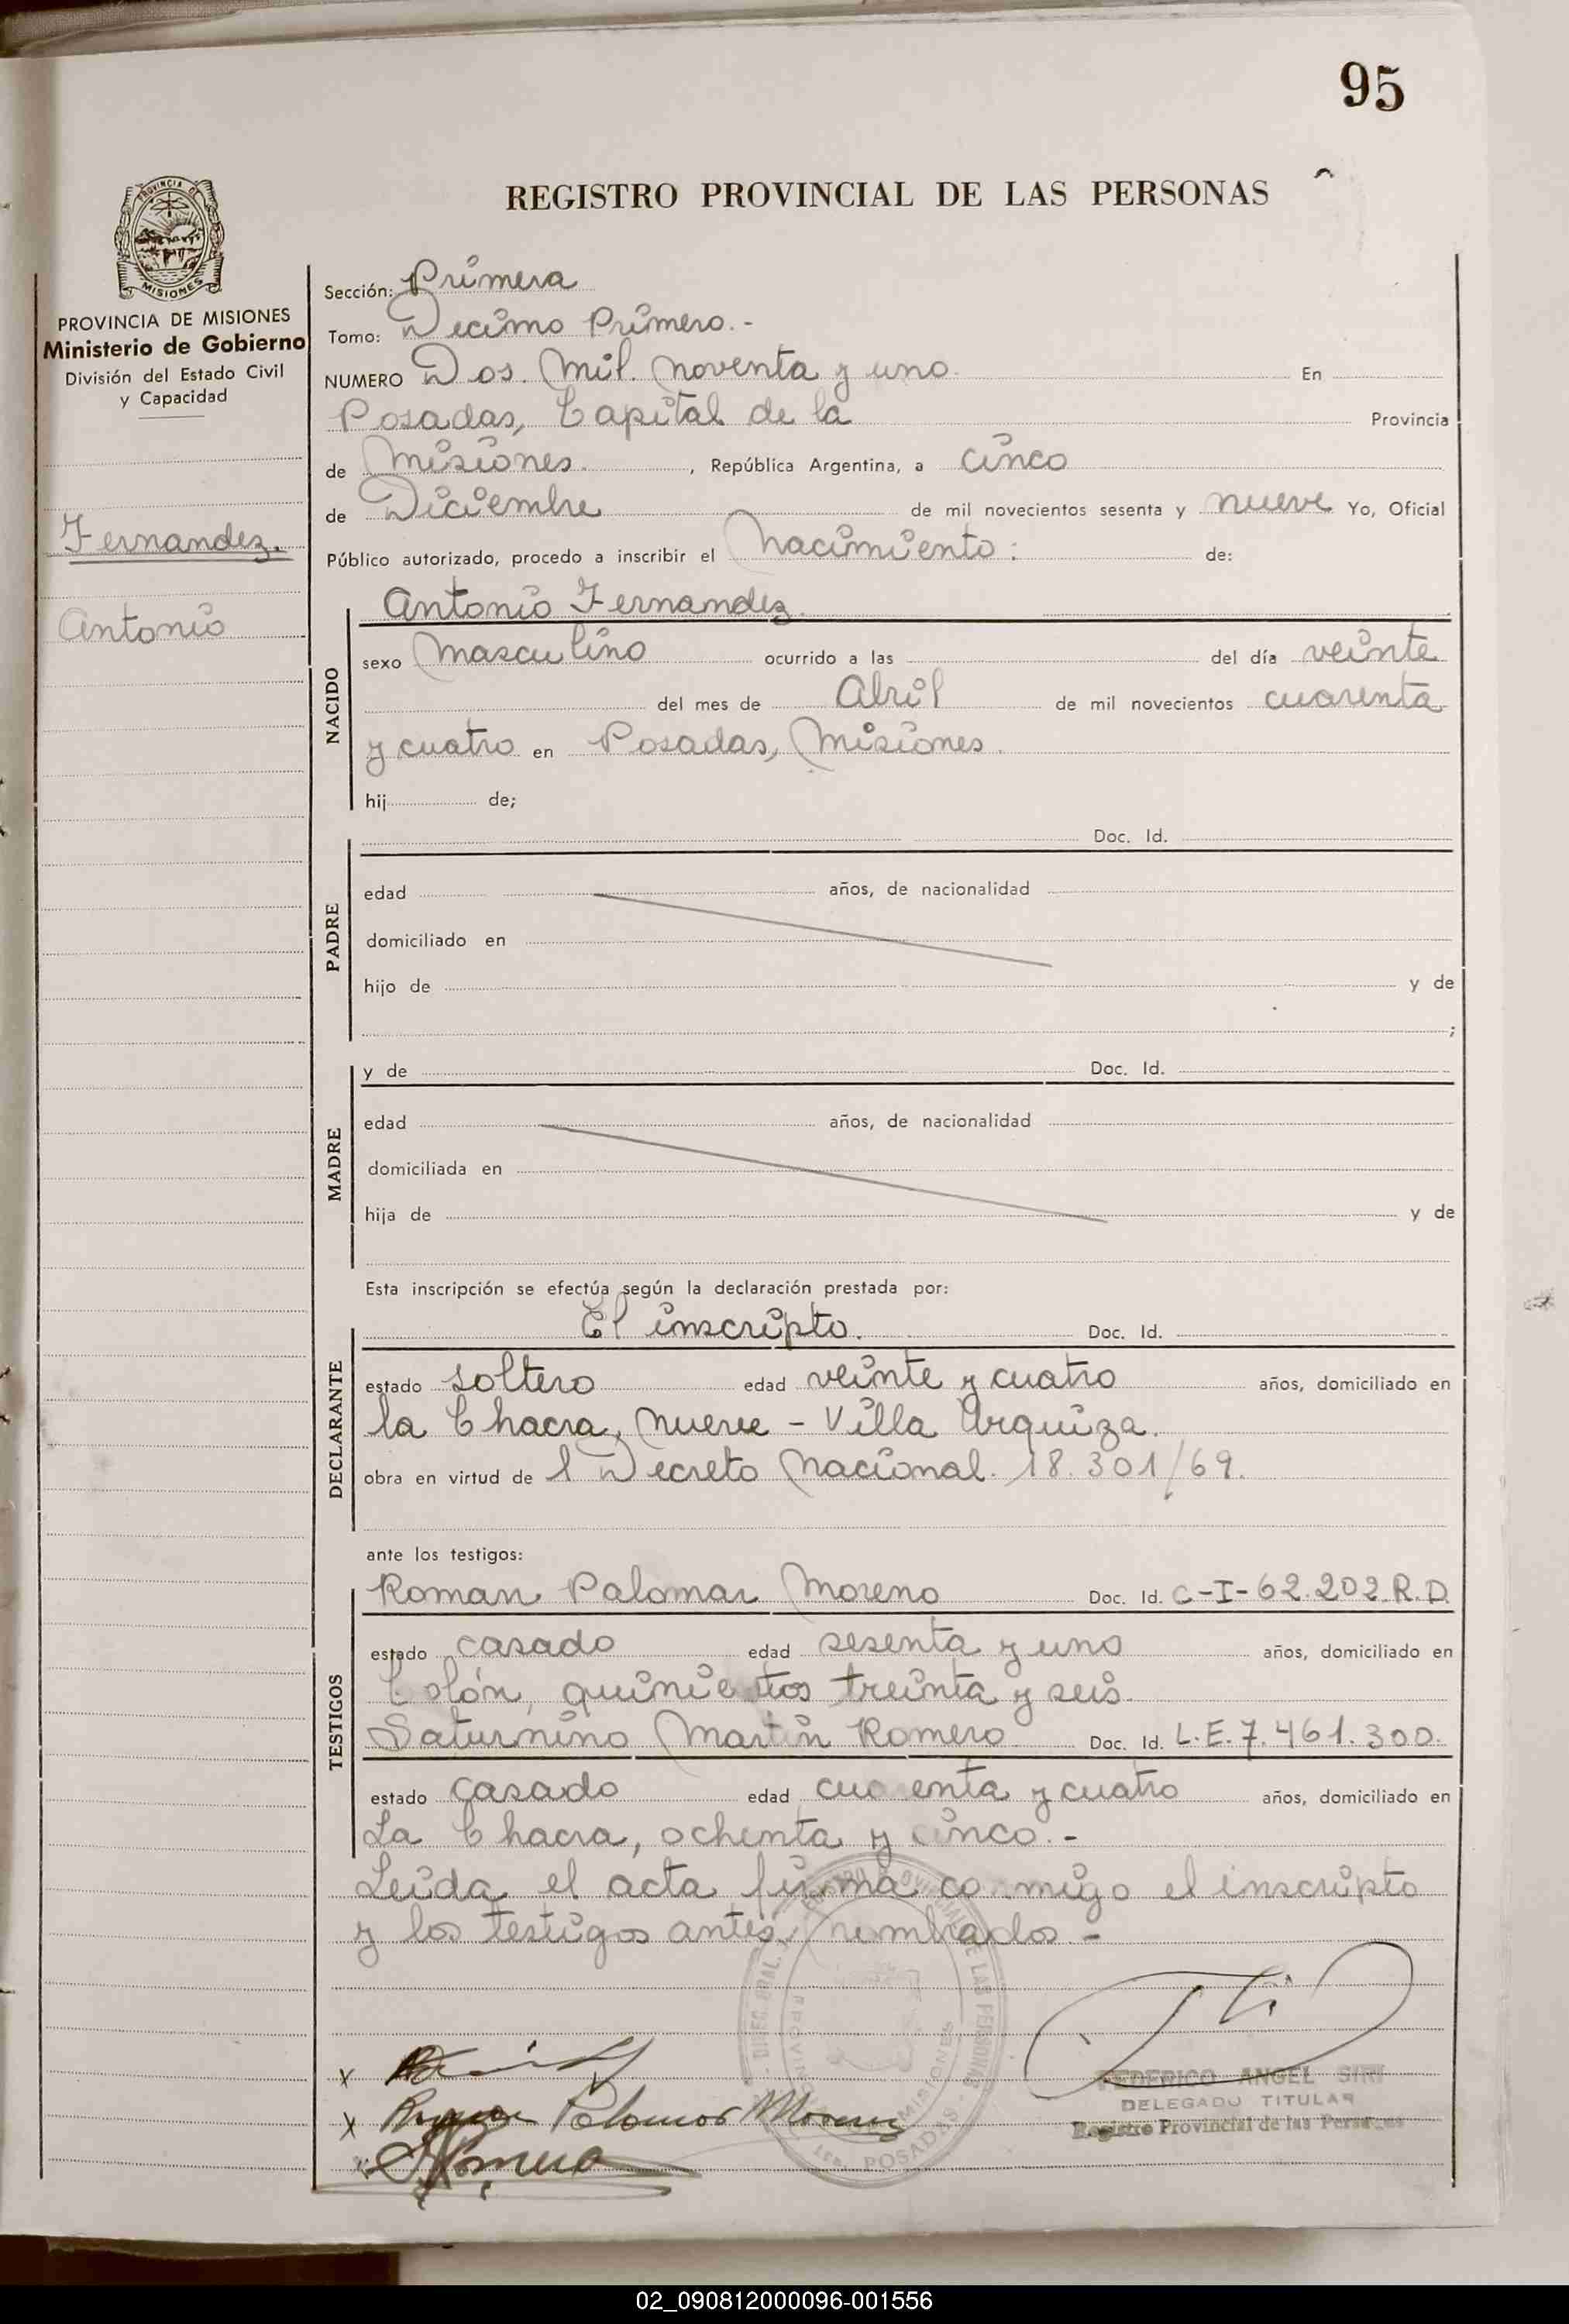 95
REGISTRO PROVINCIAL DE LAS PERSONAS
PROVINCIA DE
MISIONES
PROVINCIA DE MISIONES
Ministerio de Gobierno
División del Estado Civil
y Capacidad
Fernandez.
Antonio
Sección: Primera
Tomo: Decimo Primero.-
NUMERO Dos. Mil. Noventa y uno En
Posadas, Capital de la Provincia
de Misiones. , República Argentina, a cinco
de Diciembre de mil novecientos sesenta y nueve Yo, Oficial
Público autorizado, procedo a inscribir el Nacimiento: de:
NACIDO
Antonio Fernandez.
sexo Masculino ocurrido a las del día veinte
del mes de Abril de mil novecientos cuarenta
y cuatro en Posadas, Misiones.
hij de;
PADRE
Doc. Id.
edad años, de nacionalidad
domiciliado en
hijo de y de
;
MADRE
y de Doc. Id.
edad años, de nacionalidad
domiciliada en
hija de y de
Esta inscripción se efectúa según la declaración prestada por:
DECLARANTE
El inscripto. Doc. Id.
estado soltero edad veinte y cuatro años, domiciliado en
la Chacra, nueve - Villa Urquiza.
obra en virtud de l Decreto Nacional. 18.301/69.
ante los testigos:
TESTIGOS
Roman Palomar Moreno Doc. Id. C-I-62.202.R.D.
estado casado edad sesenta y uno años, domiciliado en
Colón, quinientos treinta y seis.
Saturnino Martin Romero Doc. Id. L.E.7.461.300.
estado casado edad cuarenta y cuatro años, domiciliado en
La Chacra, ochenta y cinco.-
Leida el acta firma conmigo el inscripto
y los testigos antes nombrados.-
DIREC. GRAL. REGISTRO PROVINCIAL DE LAS PERSONAS
MISIONES
POSADAS
x
x Roman Palomar Moreno
x Romero
FEDERICO ANGEL SIRI
DELEGADO TITULAR
Registro Provincial de las Personas
02_090812000096-001556